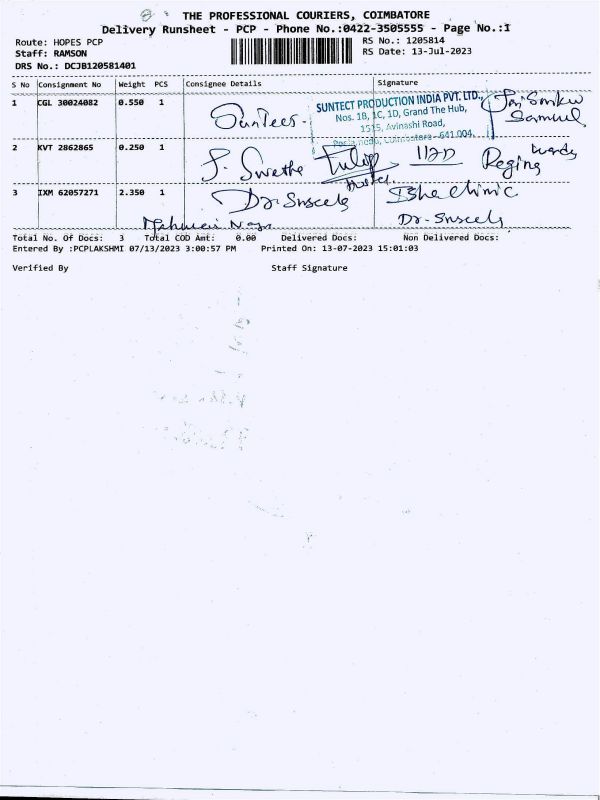 THE PROFESSIONAL COURIERS, COIMBATORE
Delivery Runsheet - PCP - Phone No.:0422-3505555 - Page No.:1
Route: HOPES PCP
RS No.: 1205814
Staff: RAMSON
RS Date: 13-Jul-2023
DRS No.: DCJB120581401
S No Consignment No Weight PCS Consignee Details Signature
1 CGL 30024082 0.550 1
SUNTECT PRODUCTION INDIA PVT. LTD.,
Nos. 1B, 1C, 1D, Grand The Hub,
1515, Avinashi Road,
Coimbatore - 641 004.
Samuel
2 KVT 2862865 0.250 1
Tulip
Hostel
3 IXM 62057271 2.350 1
Total No. Of Docs: 3 Total COD Amt: 0.00 Delivered Docs: Non Delivered Docs:
Entered By :PCPLAKSHMI 07/13/2023 3:00:57 PM Printed On: 13-07-2023 15:01:03
Verified By Staff Signature